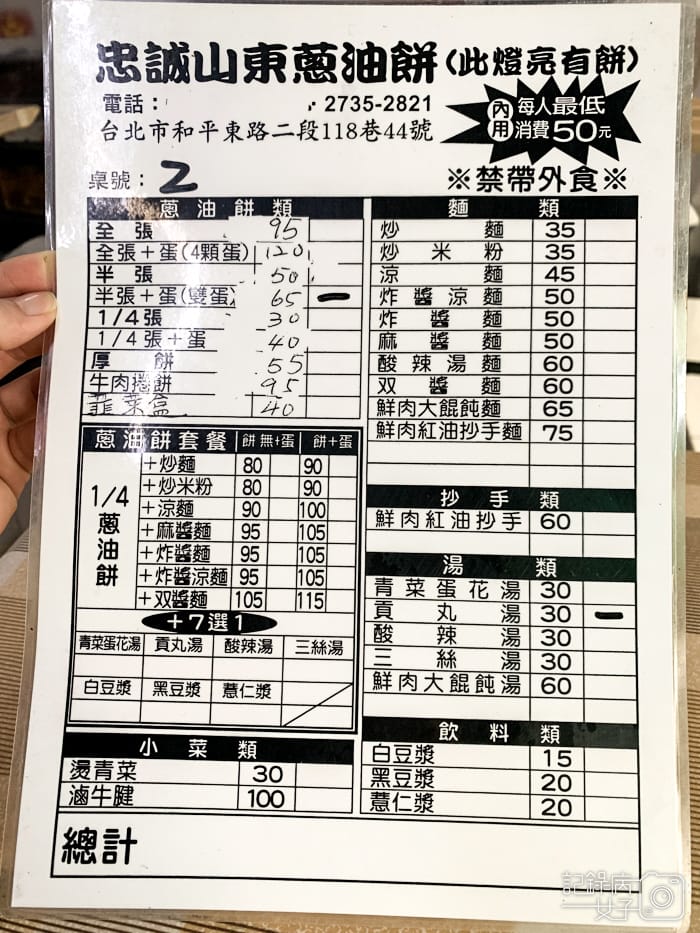 忠誠山東蔥油餅(此燈亮有餅)
電話: 2735-2821
台北市和平東路二段118巷44號
內用 每人最低消費50元
桌號: 2
※禁帶外食※
蔥油餅類
全張 95
全張+蛋(4顆蛋) 120
半張 50
半張+蛋(雙蛋) 65 一
1/4張 30
1/4張+蛋 40
厚餅 55
牛肉捲餅 95
韮菜盒 40
蔥油餅套餐 餅無+蛋 餅+蛋
1/4蔥油餅
+炒麵 80 90
+炒米粉 80 90
+涼麵 90 100
+麻醬麵 95 105
+炸醬麵 95 105
+炸醬涼麵 95 105
+双醬麵 105 115
+7選1
青菜蛋花湯 貢丸湯 酸辣湯 三絲湯
白豆漿 黑豆漿 薏仁漿
小菜類
燙青菜 30
滷牛腱 100
麵類
炒麵 35
炒米粉 35
涼麵 45
炸醬涼麵 50
炸醬麵 50
麻醬麵 50
酸辣湯麵 60
双醬麵 60
鮮肉大餛飩麵 65
鮮肉紅油抄手麵 75
抄手類
鮮肉紅油抄手 60
湯類
青菜蛋花湯 30
貢丸湯 30 一
酸辣湯 30
三絲湯 30
鮮肉大餛飩湯 60
飲料類
白豆漿 15
黑豆漿 20
薏仁漿 20
總計
記錄肉女子